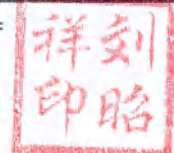 刘昭
祥印